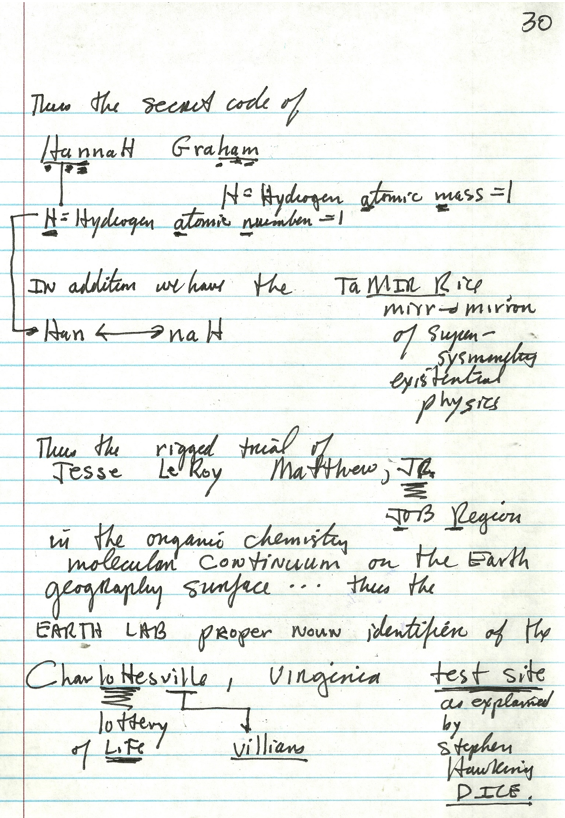 30
Thus the secret code of
HannaH Graham
H = Hydrogen atomic mass = 1
H = Hydrogen atomic number = 1
IN addition we have the TaMIR Rice
mirr → mirror
Han ↔ naH
of super-
symmetry
existential
physics
Thus the rigged trial of
Jesse LeRoy Matthew, JR.
JOB Region
in the organic chemistry
molecular CONTINUUM on the Earth
geography surface ... thus the
EARTH LAB proper noun identifier of the
Charlottesville, Virginia test site
lottery
of LiFe
villians
as explained
by
Stephen
Hawking
DICE.